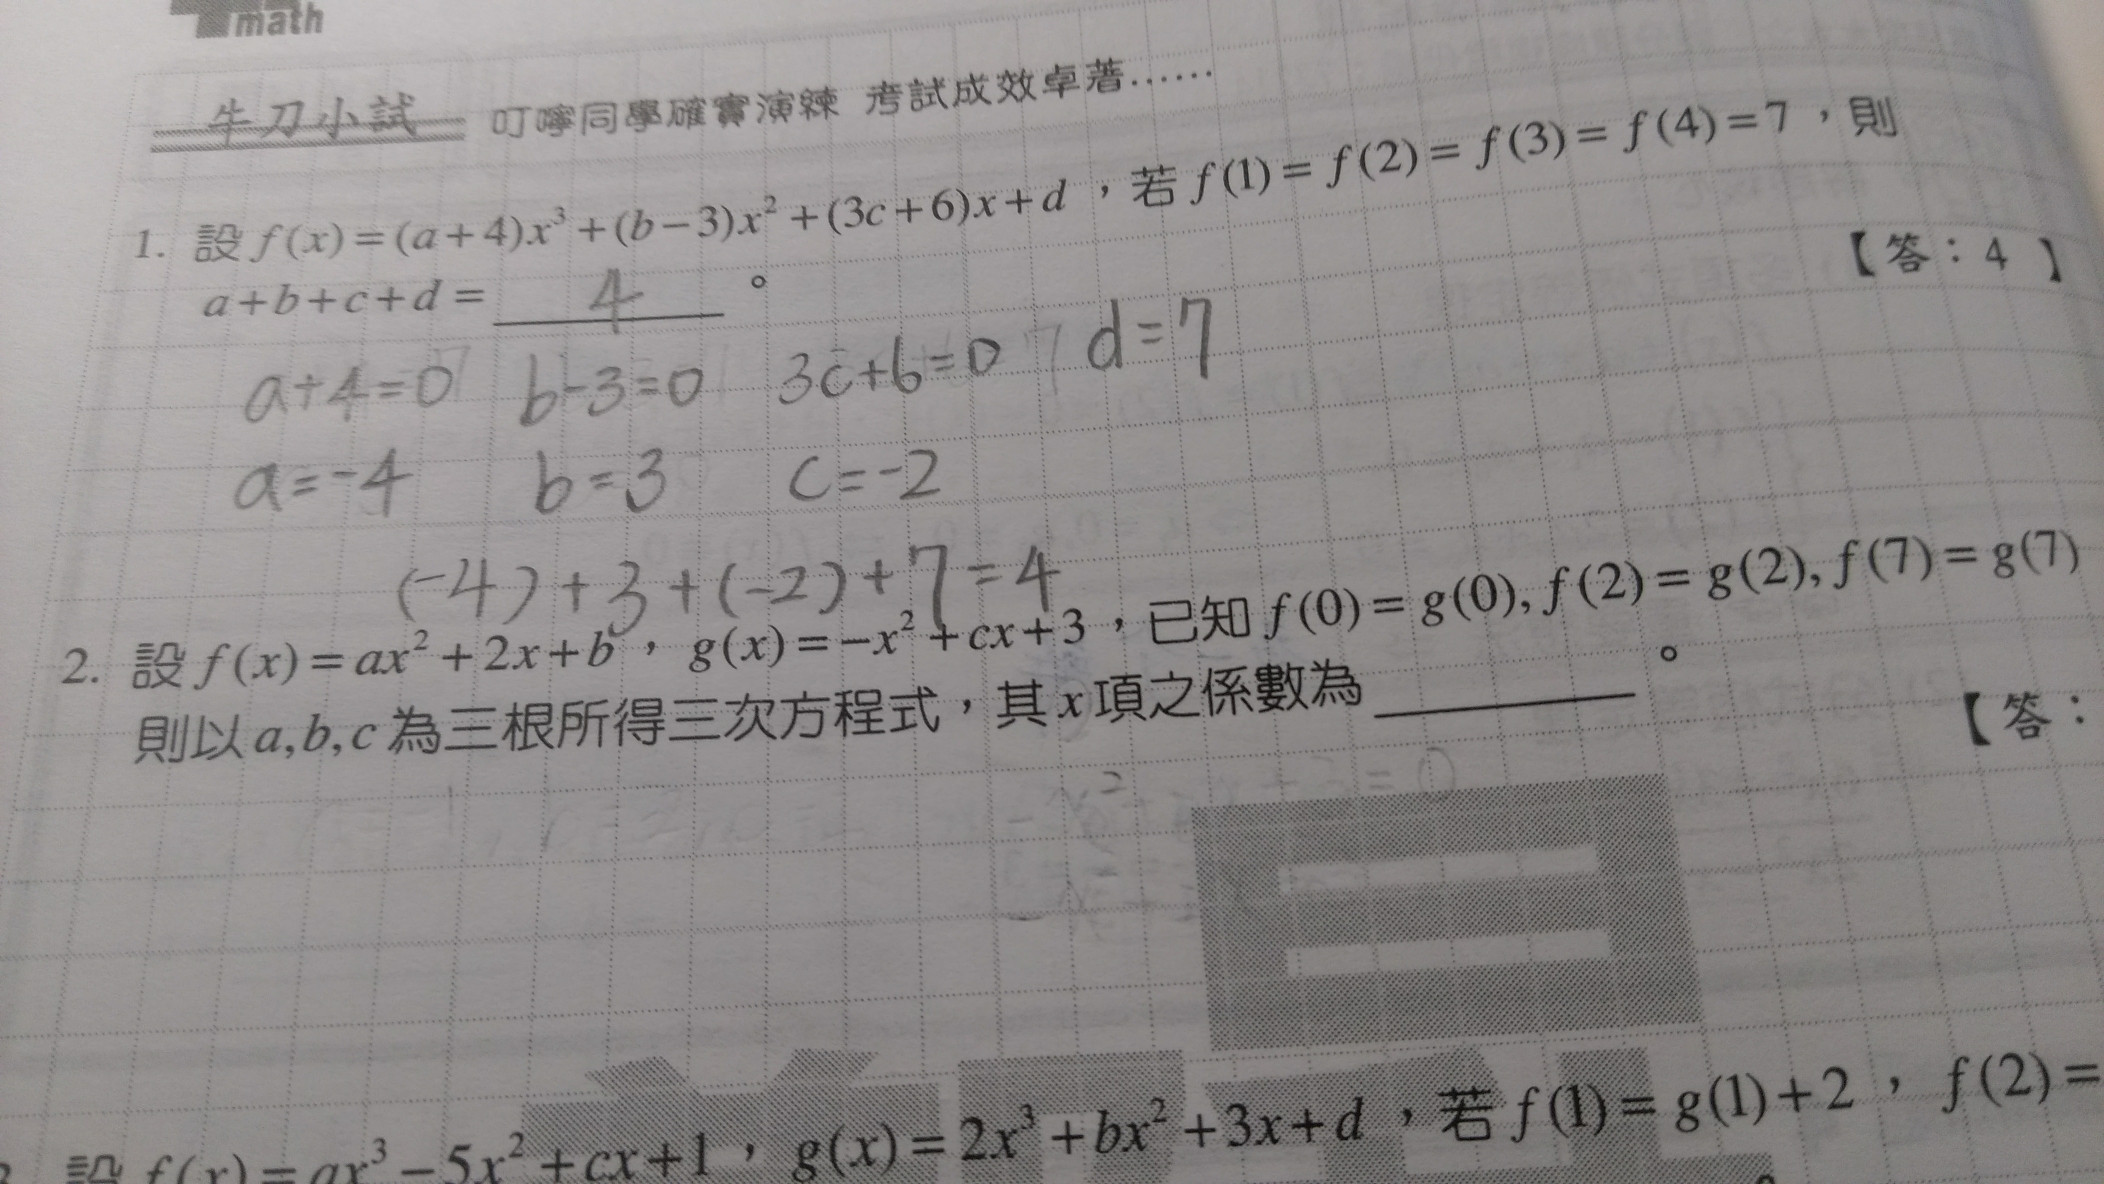 math
牛刀小試 叮嚀同學確實演練 考試成效卓著……
1. 設 f(x)=(a+4)x³+(b−3)x²+(3c+6)x+d，若 f(1)=f(2)=f(3)=f(4)=7，則
a+b+c+d= 4 。 【答：4】
a+4=0 b-3=0 3c+6=0 d=7
a=-4 b=3 c=-2
(-4)+3+(-2)+7=4
2. 設 f(x)=ax²+2x+b，g(x)=−x²+cx+3，已知 f(0)=g(0), f(2)=g(2), f(7)=g(7)
則以 a,b,c 為三根所得三次方程式，其 x 項之係數為 ＿＿＿。
【答：
設 f(x)=ax³−5x²+cx+1，g(x)=2x³+bx²+3x+d，若 f(1)=g(1)+2，f(2)=